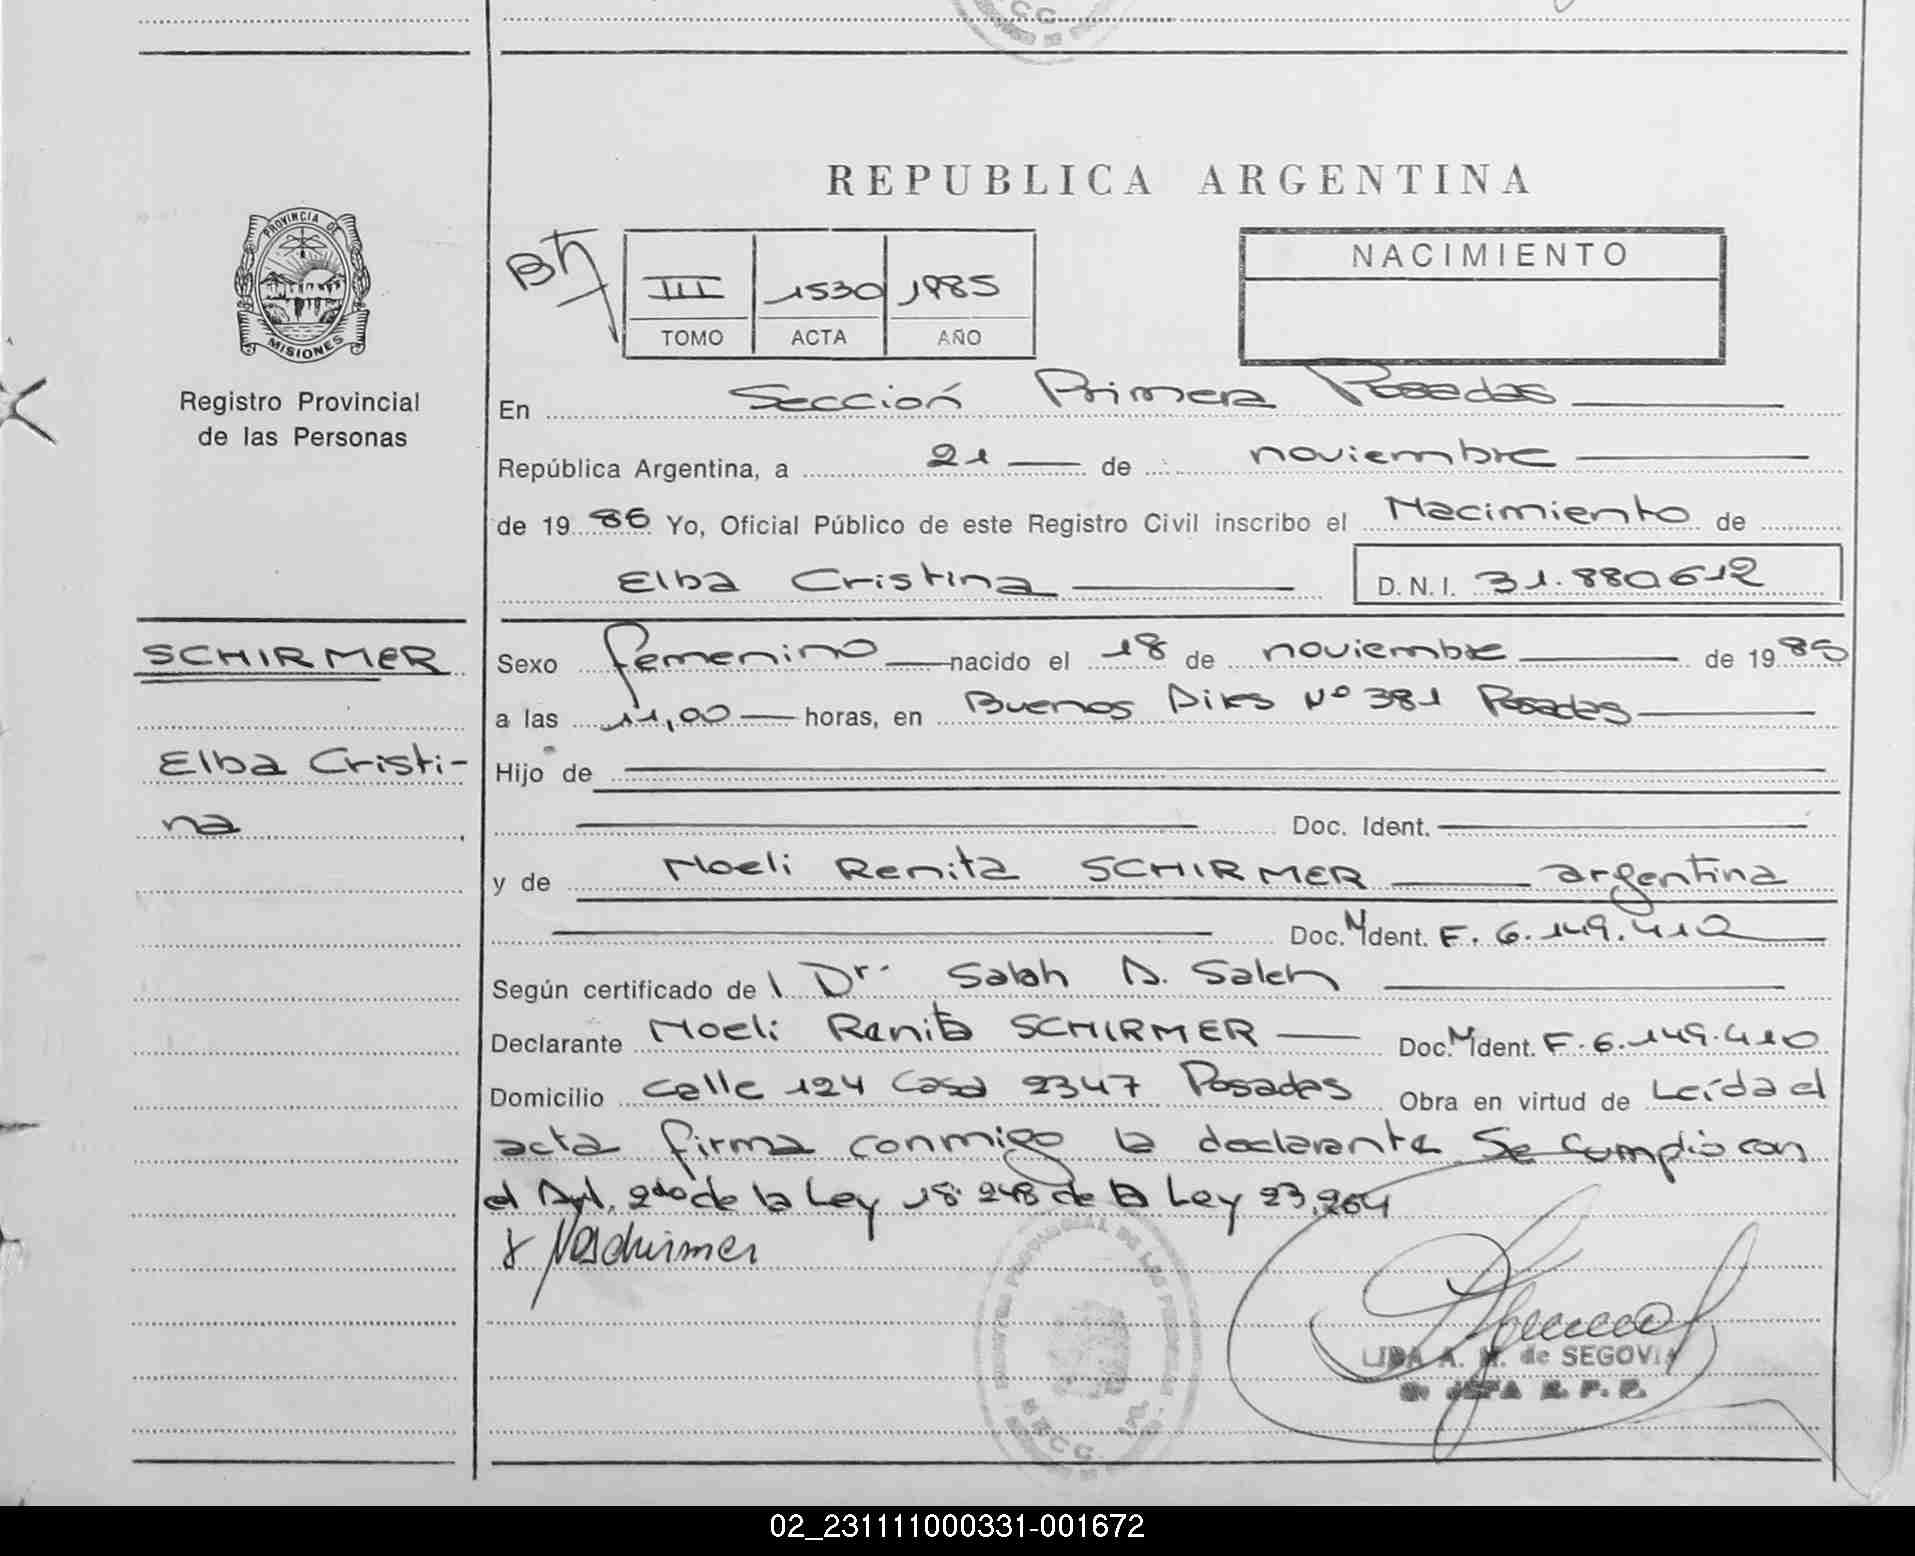 REPUBLICA ARGENTINA
PROVINCIA DE
MISIONES
Registro Provincial
de las Personas
III 1530 1985
TOMO ACTA AÑO
NACIMIENTO
En Sección Primera Posadas
República Argentina, a 21 de noviembre
de 19 86 Yo, Oficial Público de este Registro Civil inscribo el Nacimiento de
Elba Cristina D.N.I. 31.880612
SCHIRMER
Elba Cristi-
na
Sexo femenino nacido el 18 de noviembre de 19 85
a las 11,00 horas, en Buenos Aires Nº 381 Posadas
Hijo de
Doc. Ident.
y de Noeli Renita SCHIRMER argentina
Doc. M Ident. F. 6.149.410
Según certificado de l Dr. Salah A. Saleh
Declarante Noeli Renita SCHIRMER Doc. M Ident. F. 6.149.410
Domicilio calle 124 Casa 2347 Posadas Obra en virtud de Leída el
acta firma conmigo la declarante Se Cumplió con
el Art. 2do de la Ley 18.248 de la Ley 23,264
LIDA A. M. de SEGOVIA
JEFA R. P. P.
02_231111000331-001672